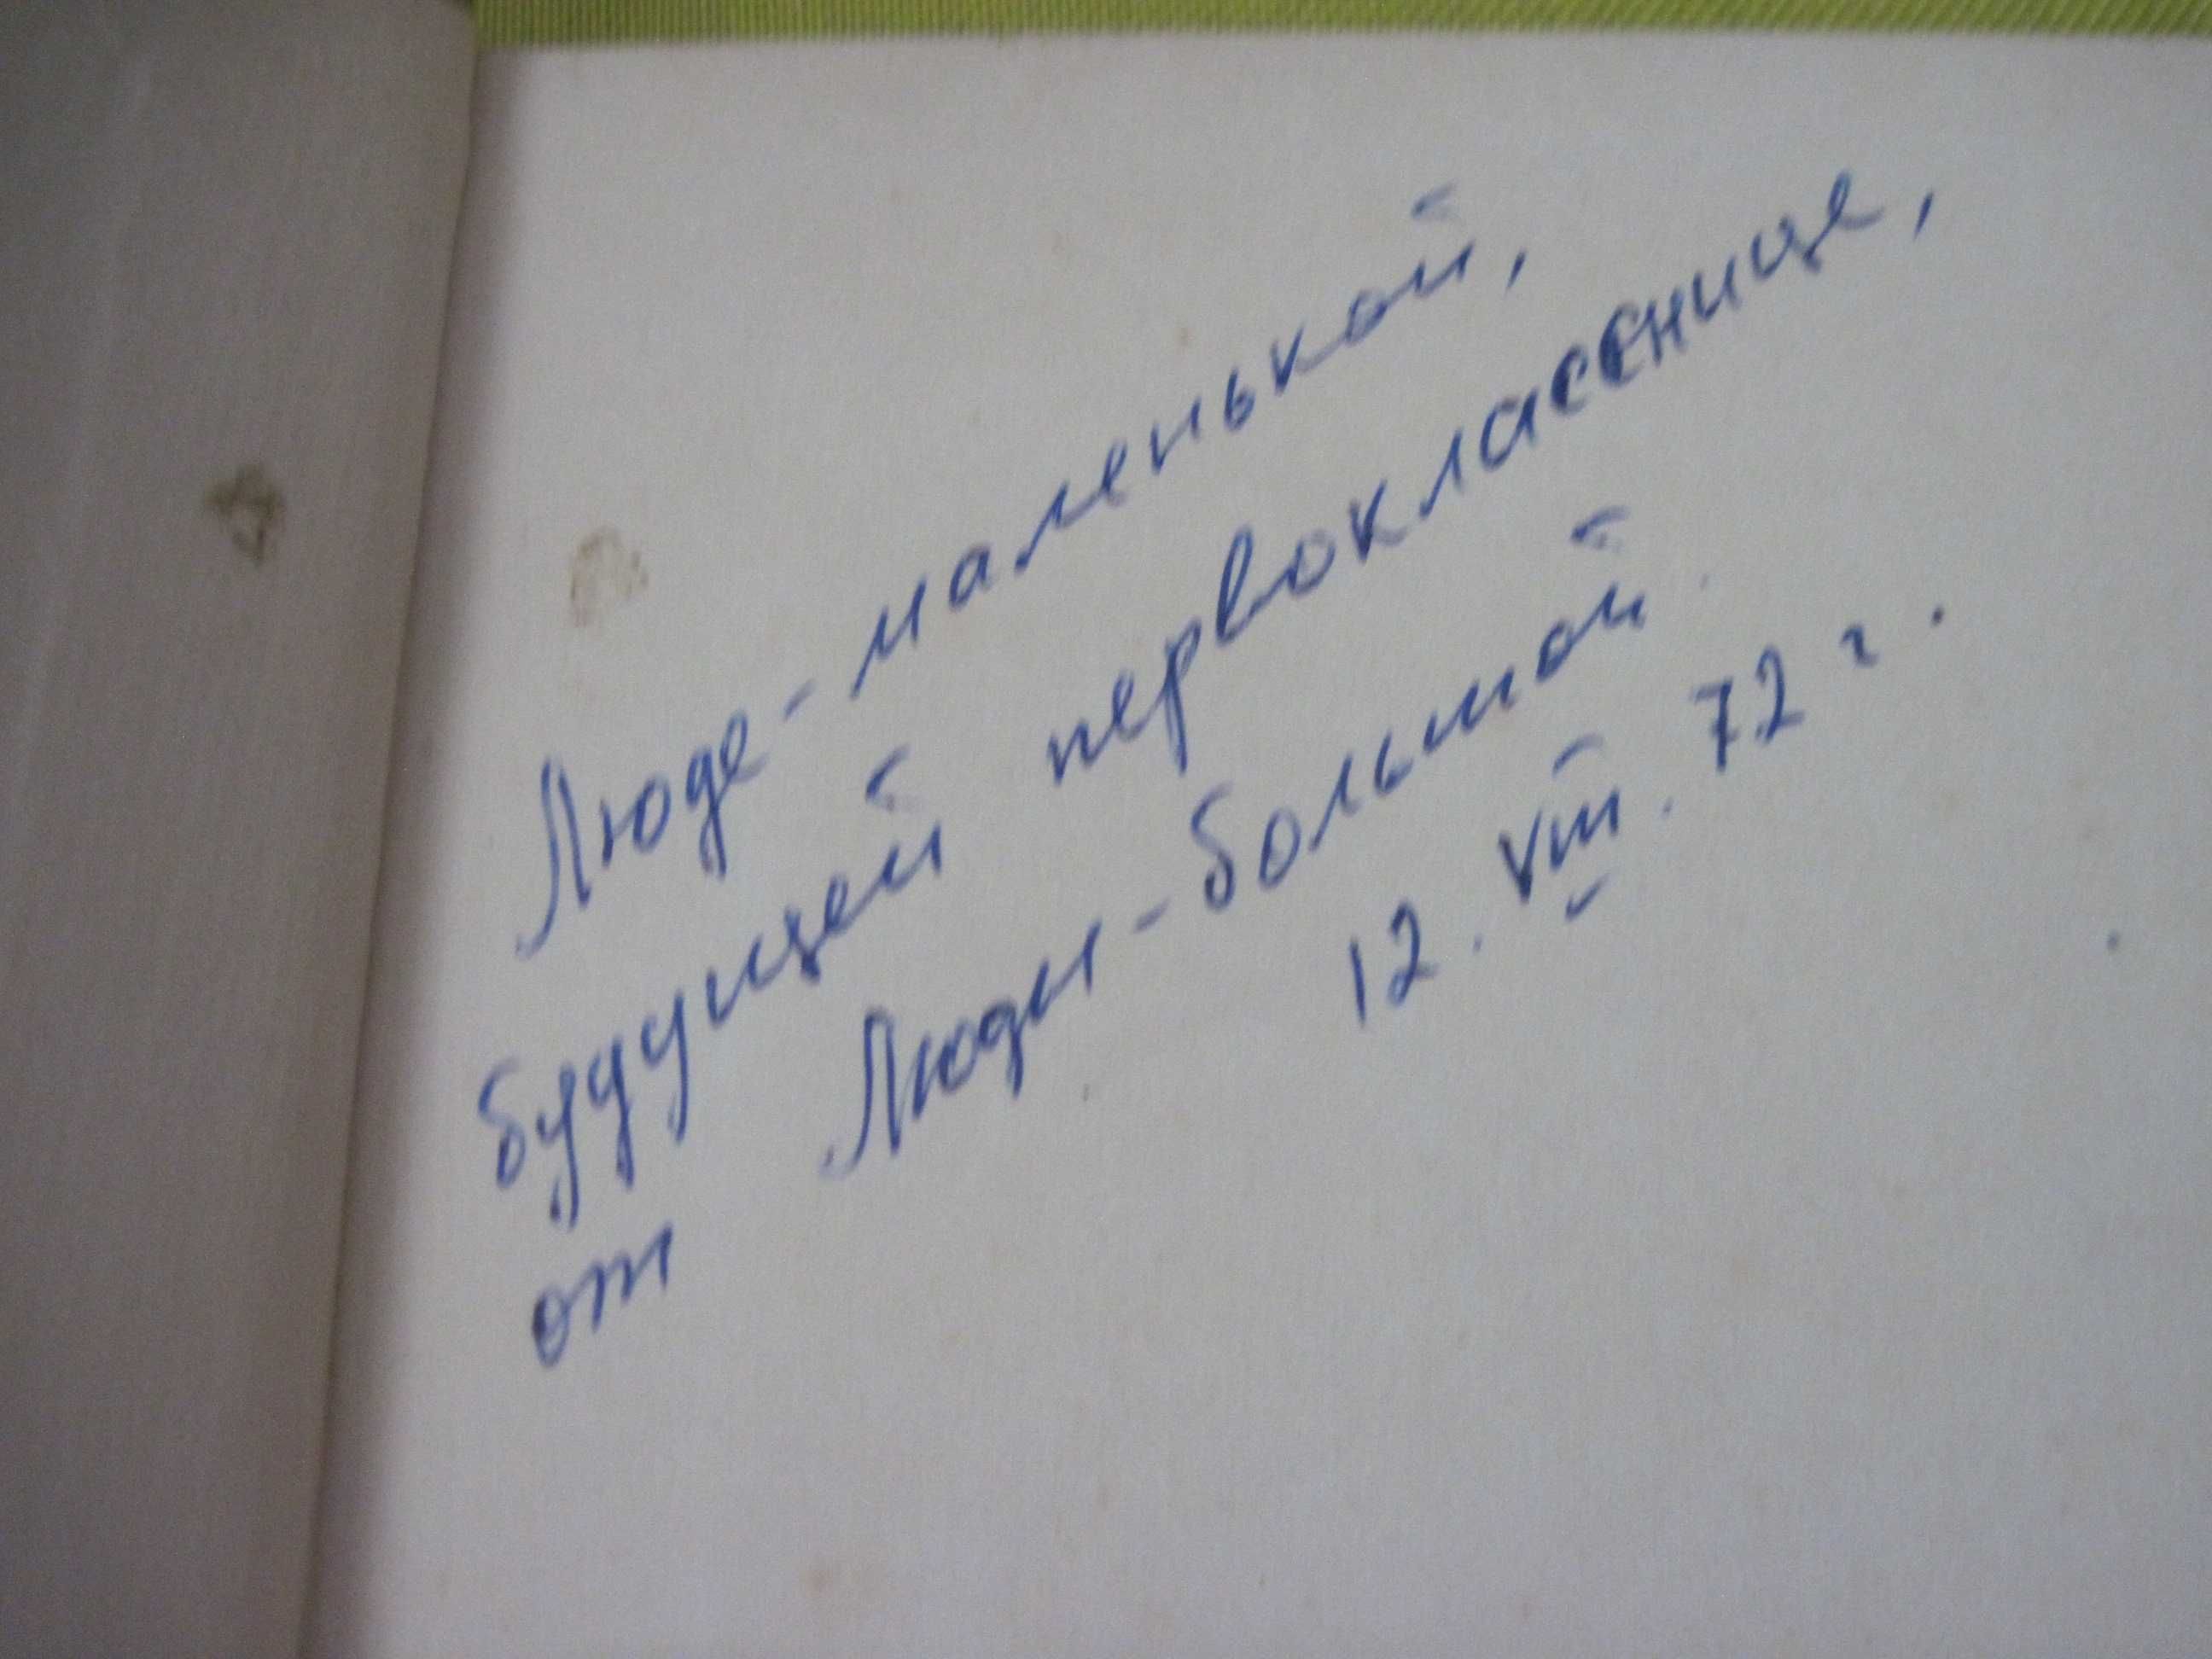 Люде - маленькой,
будущей первоклассенице,
от Люды - большой.
12. VIII. 72 г.